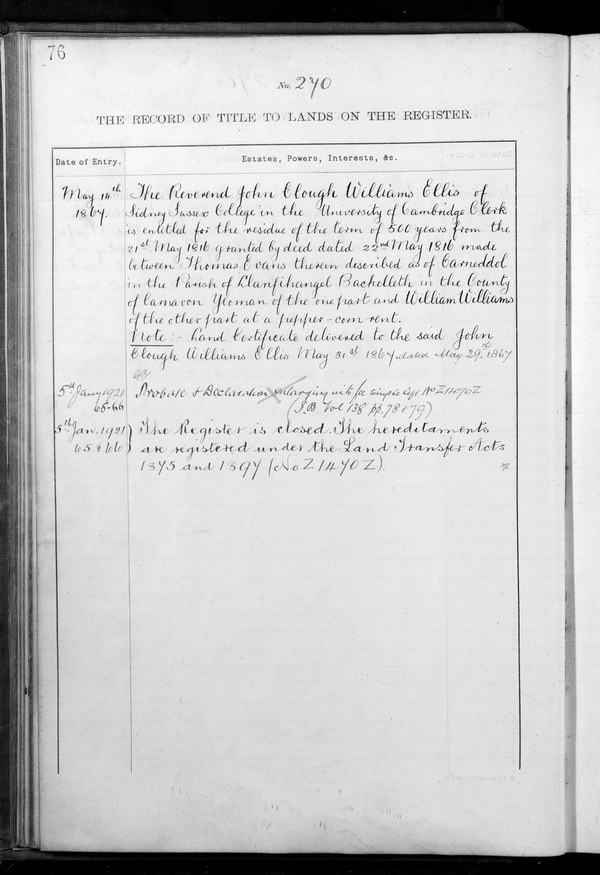 76
No. 270
THE RECORD OF TITLE TO LANDS ON THE REGISTER.
Date of Entry.
Estates, Powers, Interests, &c.
May 14th 1867.
The Reverend John Clough Williams Ellis of
Sidney Sussex College in the University of Cambridge Clerk
is entitled for the residue of the term of 500 years from the
21st May 1816 granted by deed dated 22nd May 1816 made
between Thomas Evans therein described as of Carneddol
in the Parish of Llanfihangel Bachelleth in the County
of Carnavon Yeoman of the one part and William Williams
of the other part at a pepper-corn rent.
Note:- Land Certificate delivered to the said John
Clough Williams Ellis May 31st 1867. dated May 29th 1867
5th Jany 1921
65-66
Probate & Declaration enlarging into fee simple No Z1470Z
(I.B. Vol 138 pp. 78 & 79)
5th Jan. 1921
65 & 66
The Register is closed The hereditaments
are registered under the Land Transfer Acts
1875 and 1897 (No Z1470Z).